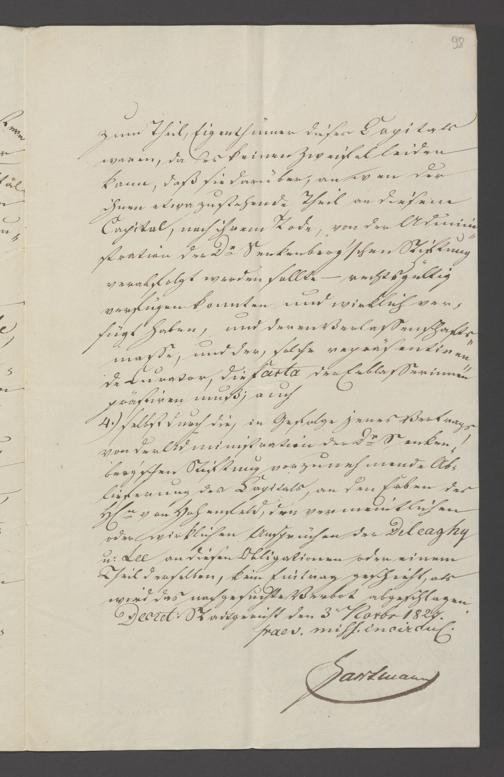 98
zum Theil, Eigenthümer dieser Capitals
waren, da es keinen Zweifel leiden
kann, daß sie darüber, an wen der
ihnen etwa zustehende Theil an diesem
Capital, nach ihrem Tode, von der Adminis
stration der Dr. Senkenberg'schen Stiftung
verabfolgt werden sollte — rechtsgültig
verfügen konnten und wirklich ver,
fügt haben, und deren Verlassenschafts
masse, und der, solche repräsentiren
de Curator, die facta der Erblasserinnen
prästiren muß; auch
4.) selbst durch die, in Gefolge jenes Vertrags,
von der Administration der Dr. Senken,
bergschen Stiftung vorzunehmende Ab,
lieferung des Capitals, an den Erben des
von Hohenfeld, den vermeintlichen
oder wirklichen Ansprüchen der Deleaghy
u. Lee an diesen Obligationen oder einem
Theil derselben, kein Eintrag geschieht, als
wird das nachgesuchte Verbot abgeschlagen
Decret: Stadtgericht den 3n Novbr 1824.
praev. miss.
Hartmann